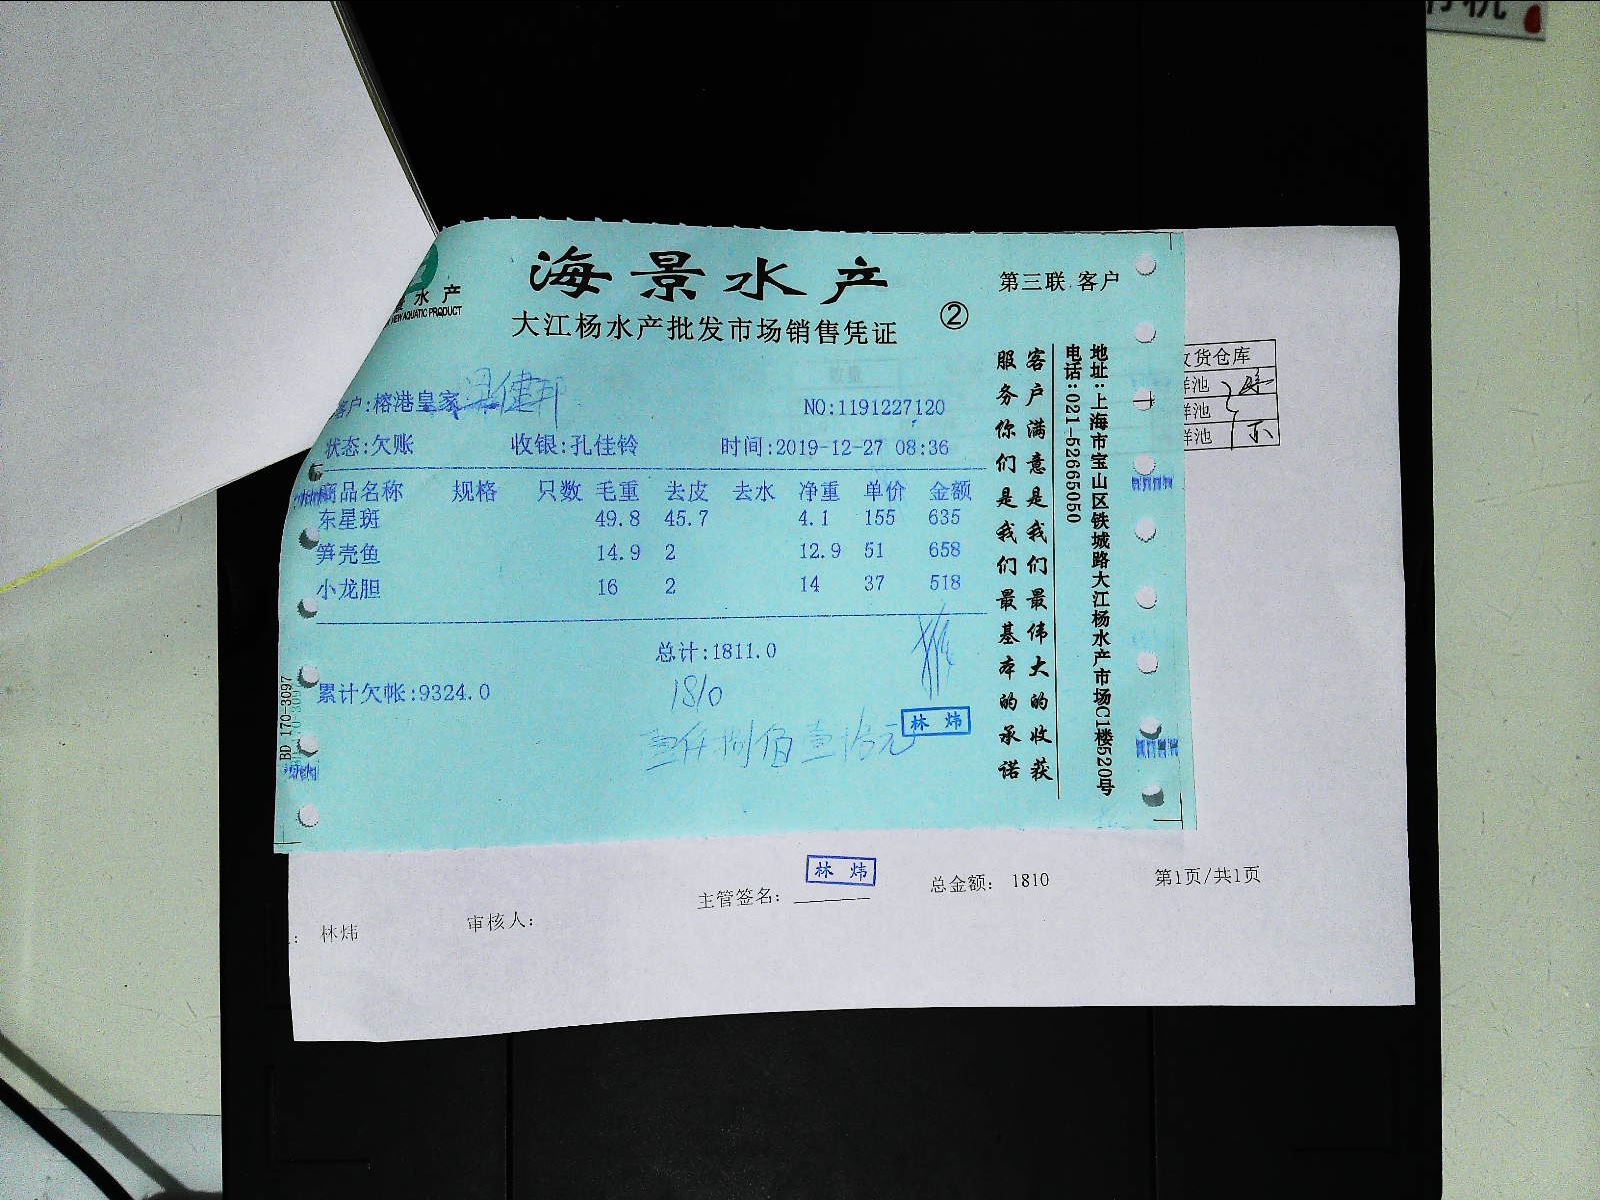 海景水产
第三联 客户
水产
NEW AQUATIC PRODUCT
大江杨水产批发市场销售凭证
②
客户:榕港皇家
NO:1191227120
状态:欠账 收银:孔佳铃 时间:2019-12-27 08:36
商品名称 规格 只数 毛重 去皮 去水 净重 单价 金额
东星斑 49.8 45.7 4.1 155 635
笋壳鱼 14.9 2 12.9 51 658
小龙胆 16 2 14 37 518
总计:1811.0
累计欠帐:9324.0
1810
壹仟捌佰壹拾元
林炜
客户满意是我们最伟大的收获
服务你们是我们最基本的承诺
地址:上海市宝山区铁城路大江杨水产市场C1楼520号
电话:021-52665050
BD 170-3097
收货仓库
鲜池
鲜池
鲜池
林炜
主管签名:
总金额: 1810
第1页/共1页
: 林炜
审核人: